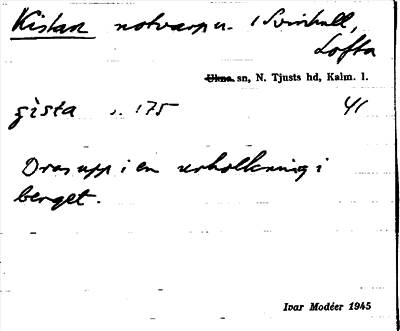 Kistan notvarp u. Svinhult,
Lofta
Ukna sn, N. Tjusts hd, Kalm. l.
gista s. 175 41
Dras upp i en urholkning i
berget.
Ivar Modéer 1945